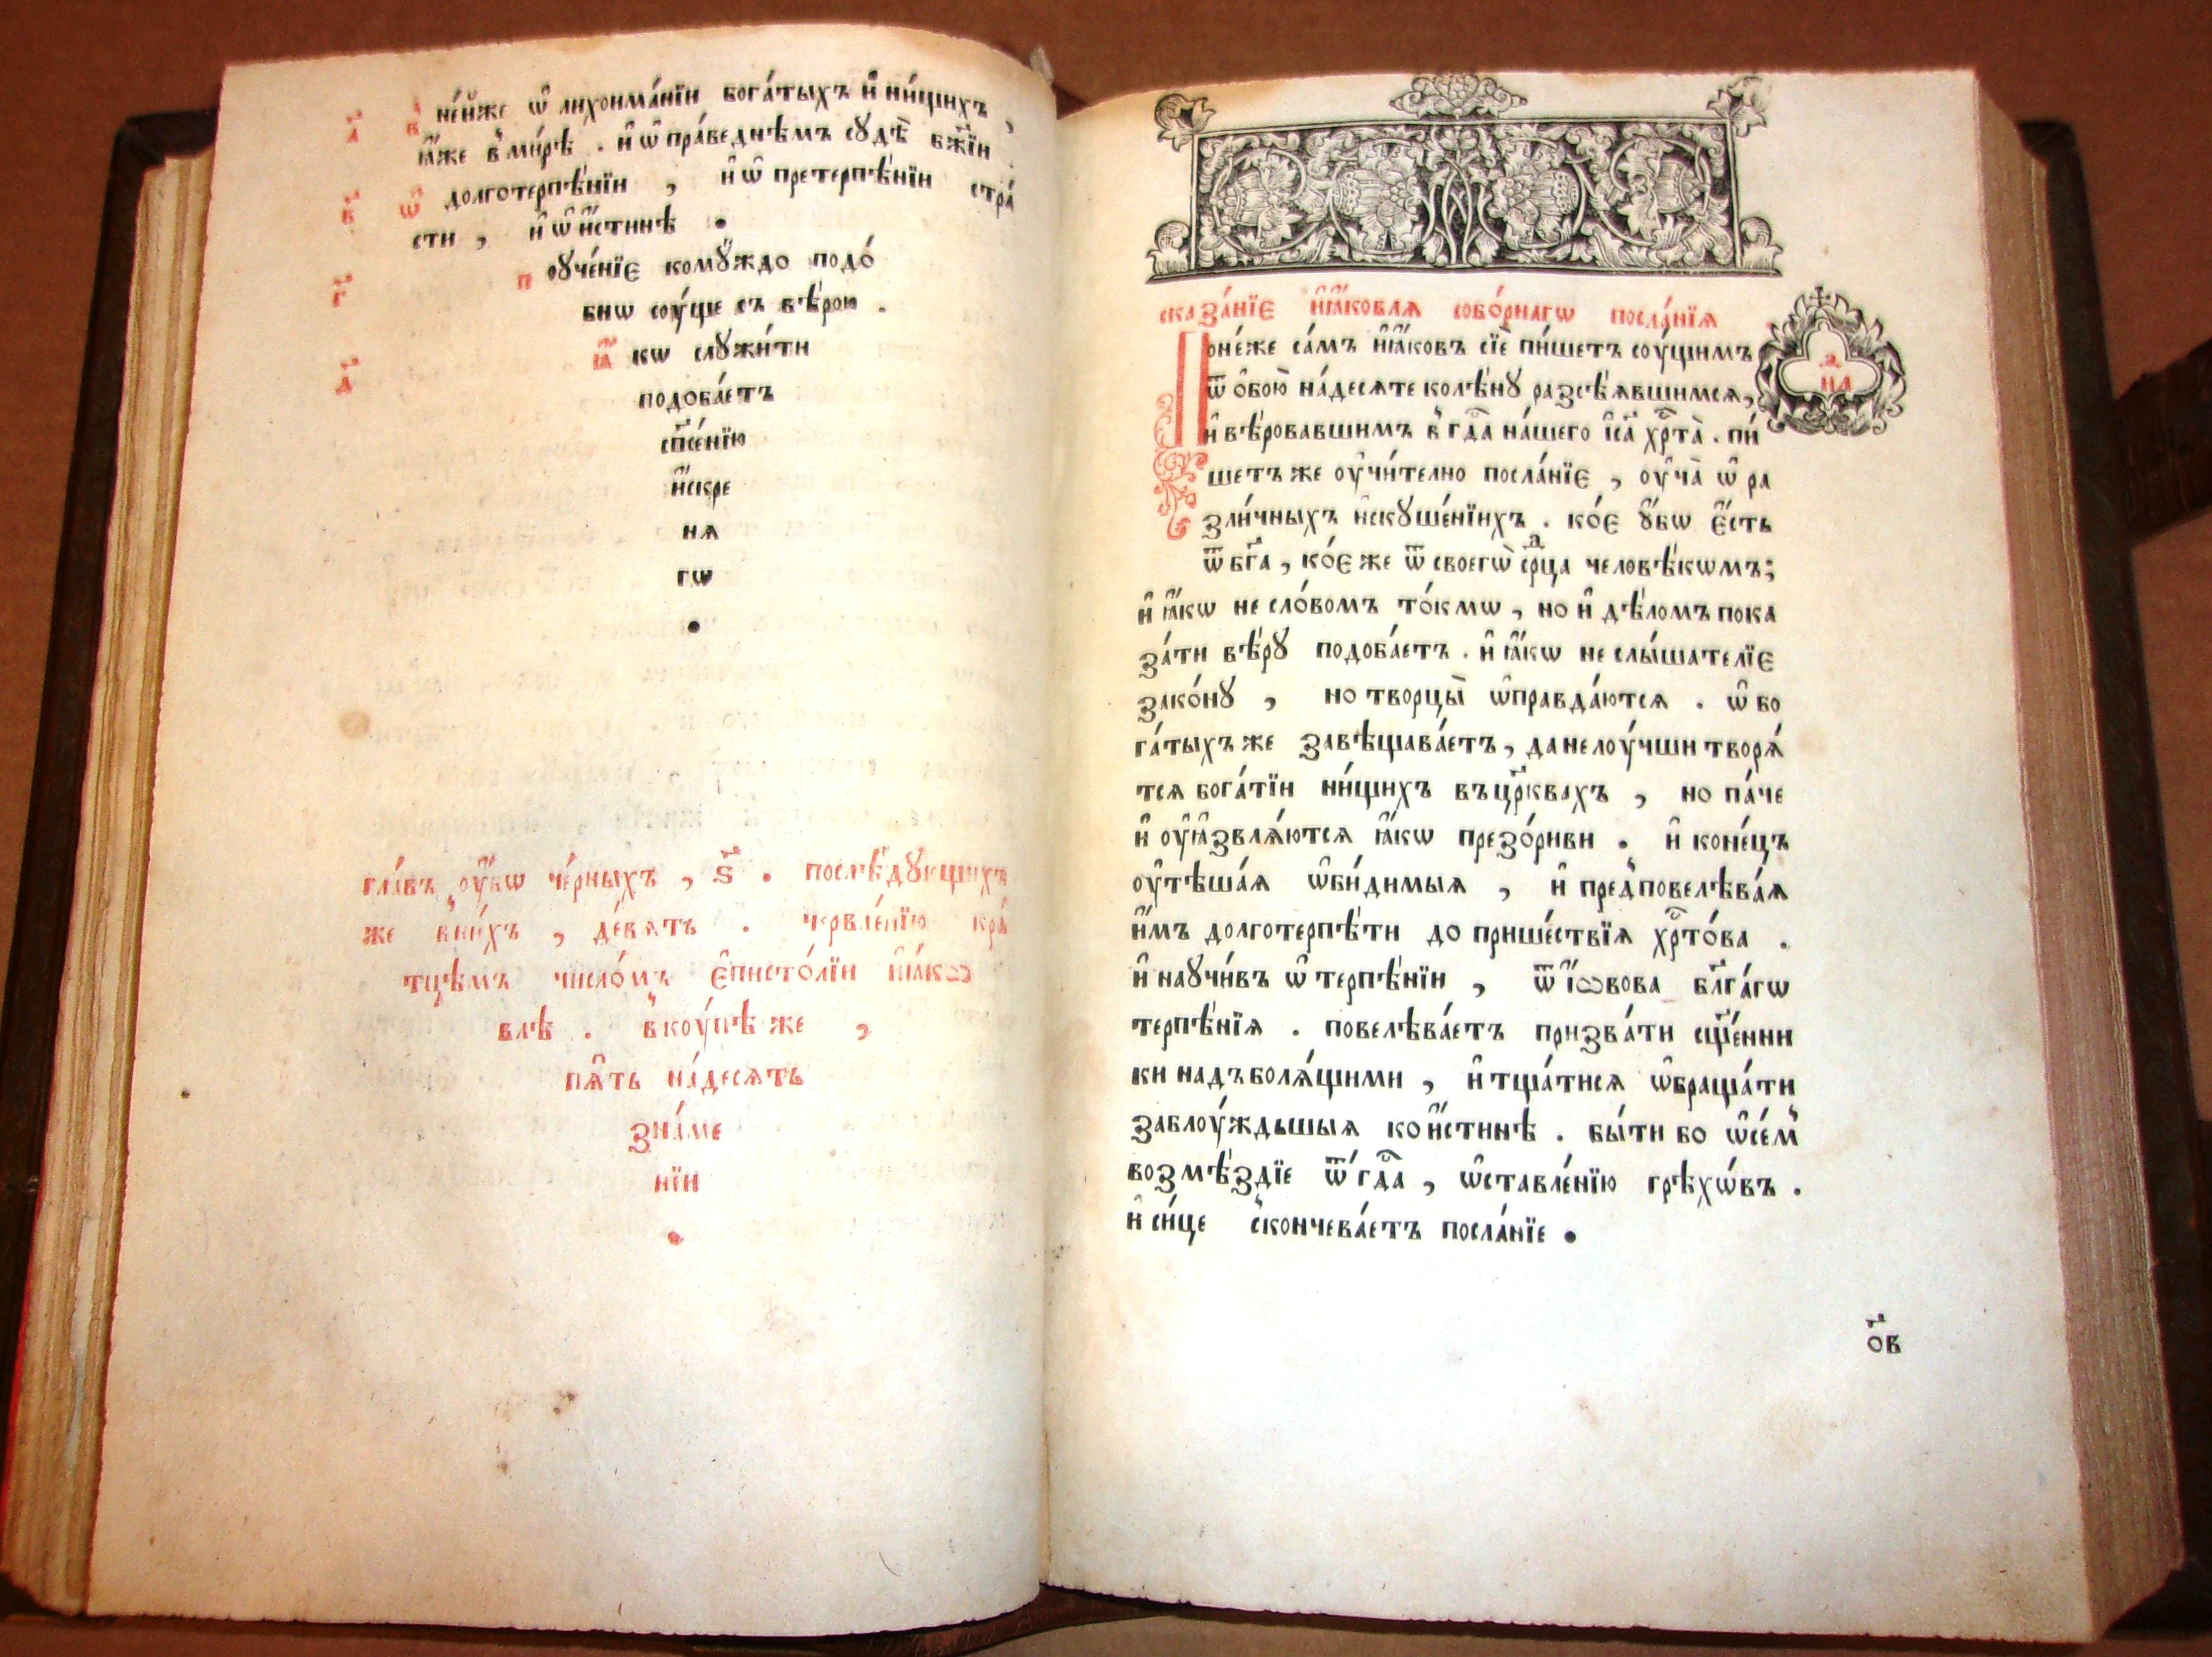 а҃ в҆ не́йже ѡ҆ лихоима́нїи бога́тыхъ и҆ ни́щихъ ,
ꙗ҆́же в҆ ми́рѣ . и҆ ѡ҆ пра́веднѣмъ сꙋдѐ бж҃їи
в҃ ѡ҆ долготерпѣ́нїи , и҆ ѡ҆ претерпѣ́нїи стра́
сти , и҆ ѡ҆ и҆́стинѣ .
г҃ поꙋче́нїе комꙋ́ждо подо́
бнѡ соу́ще съ вѣ́рою .
д҃ ꙗ҆́кѡ слꙋжи́ти
подоба́етъ
сп҃се́нїю
и҆́скре
нѧ
гѡ
.
гла́въ оу҆́бѡ че́рныхъ , ѕ҃ . послѣ́дꙋющихъ
же в ни́хъ , де́вѧть . червле́нїю кра́
тцѣмъ число́мъ є҆писто́лїи і҆ꙗ́кѡ
влѣ . вкоу́пѣ же ,
пѧ́ть на́десѧть
зна́ме
нїи
.
сказа́нїе і҆ꙗ́ковлѧ собо́рнагѡ посла́нїѧ
Поне́же са́мъ і҆ꙗ́ковъ сїѐ пи́шетъ соу́щимъ
ѿ ѻ҆бою̀ на́десѧте колѣ́нꙋ разсѣ́ѧвшимсѧ ,
и҆ вѣ́ровавшимъ в҆ гдⷭ҇а на́шего і҆са хрⷭ҇та̀ . пи́
шетъ же оу҆чи́телно посла́нїе , оу҆ча̀ ѡ҆ ра
зли́чныхъ и҆скꙋше́нїихъ . ко́е ꙋ҆́бѡ є҆́сть
ѿ бг҃а , ко́е же ѿ своегѡ̀ срⷣца человѣ́кѡмъ ;
и҆ ꙗ҆́кѡ не сло́вомъ то́кмѡ , но и҆ дѣ́ломъ пока
за́ти вѣ́рꙋ подоба́етъ . и҆ ꙗ҆́кѡ не слы́шателїе
зако́нꙋ , но творцы̀ ѡ҆правда́ютсѧ . ѡ҆ бо
га́тыхъ же завѣщава́етъ , да не лоу́чши творѧ́
тсѧ бога́тїи ни́щихъ въ цр҃квахъ , но па́че
и҆ оу҆ꙗ҆звлѧ́ютсѧ ꙗ҆́кѡ презо́риви . и҆ коне́цъ
оу҆тѣша́ѧ ѡ҆би́димыѧ , и҆ предповелѣва́ѧ
и҆̀мъ долготерпѣ́ти до прише́ствїѧ хрⷭ҇то́ва .
и҆ наꙋчи́въ ѡ҆ терпѣ́нїи , ѿ і҆́ѡвова бл҃га́гѡ
терпѣ́нїѧ . повелѣва́етъ призва́ти сщ҃е́нни
ки надъ болѧ́щими , и҆ тща́тисѧ ѡ҆браща́ти
заблоу́ждьшыѧ ко и҆́стинѣ . бы́ти бо ѡ҆ се́м
возмѣ́здїе ѿ гдⷭ҇а , ѡ҆ставле́нїю грѣхѡ́въ .
и҆ си́це скончева́етъ посла́нїе .
ѻ҃в